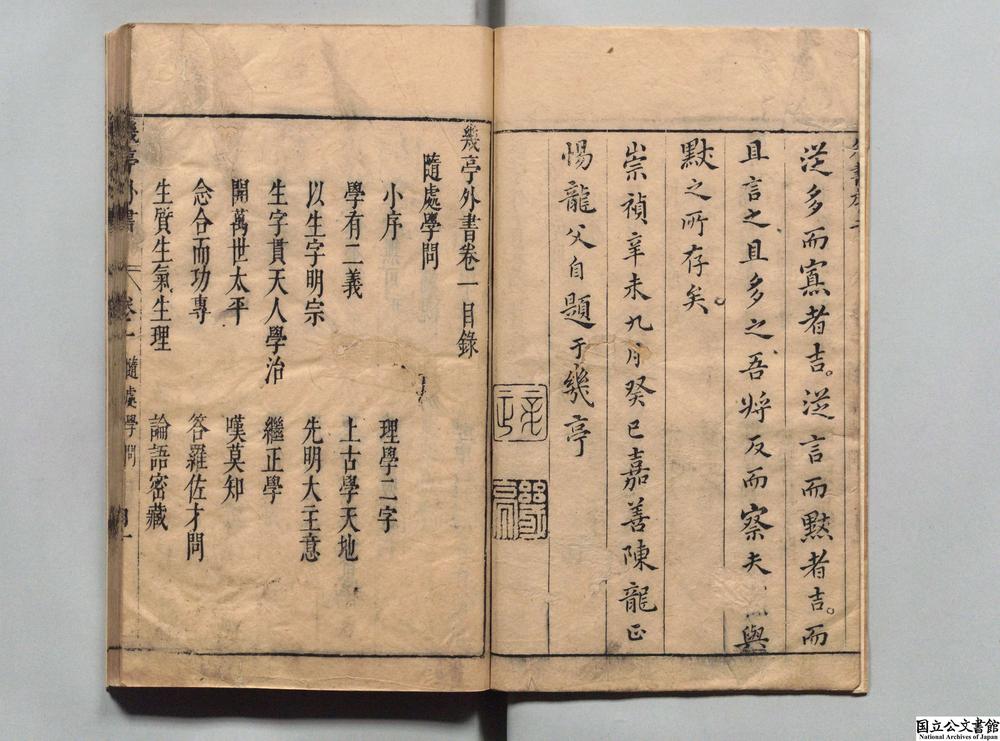 從多而寡者吉。從言而默者吉。而
且言之且多之吾將反而察夫與
默之所存矣。
崇禎辛未九月癸巳嘉善陳龍正
惕龍父自題于幾亭
幾亭外書卷一目錄
隨處學問
小序
理學二字
學有二義
上古學天地
以生字明宗
先明大主意
生字貫天人學治
繼正學
開萬世太平
嘆莫知
念合而功專
答羅佐才問
生質生氣生理
論語密藏
幾亭外書
卷一
隨處學問
国立公文書館
National Archives of Japan